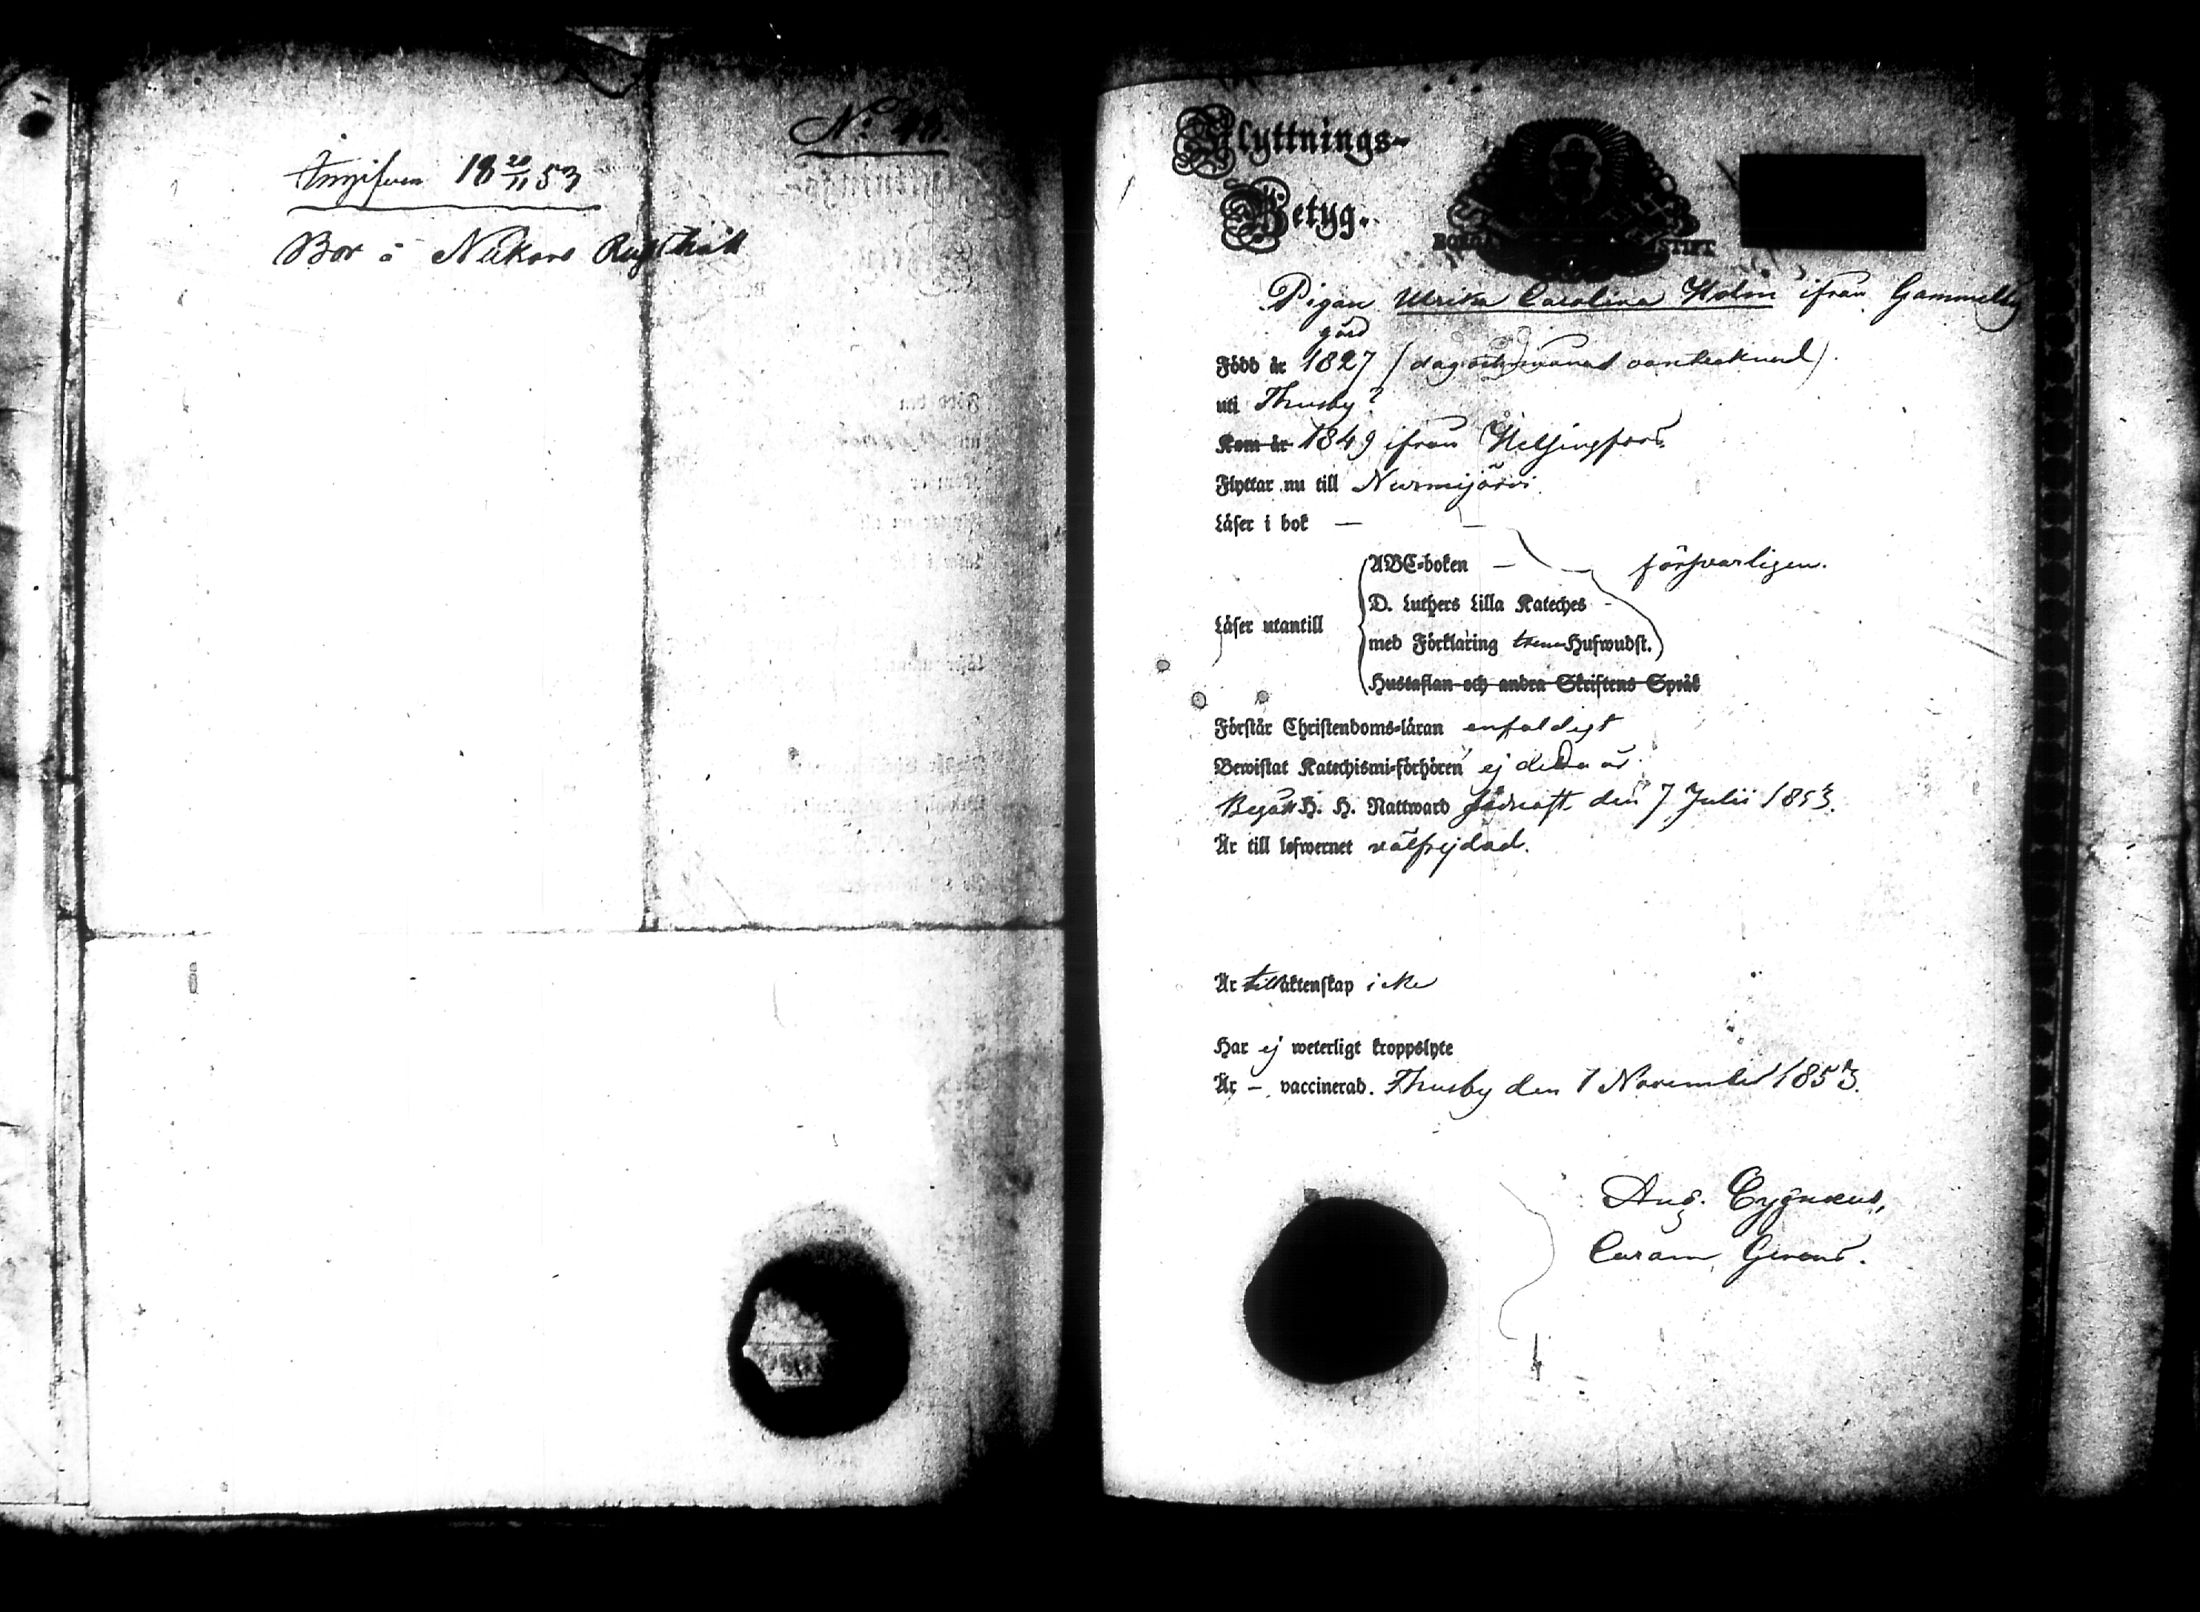 No 48.
Angifven 18 20/11 53
Bor å Nukars Rusthåll
Flyttnings-
Betyg.
BORGÅ STIFT
Pigan Ulrika Carolina Holm ifrån Gammelby
gård
Född år 1827 (dag och månad oantecknad).
uti Thusby?
Kom år 1849 ifrån Helsingfors.
Flyttar nu till Nurmijärvi
Läser i bok —
ABC-boken — försvarligen.
D. Luthers Lilla Kateches -
Läser utantill
med Förklaring trenne Hufwudst.
Hustaflan och andra Skriftens Språk
Förstår Christendoms-läran enfaldigt
Bewistat Katechismi-förhören ej detta år.
Begått H. H. Nattward sednast den 7 Julii 1853.
Är till lefwernet välfrejdad.
Är till äktenskap icke
Har ej weterligt kroppslyte
Är – vaccinerad. Thusby den 7 November 1853.
Aug. Cygnæus,
Curam Gerens.